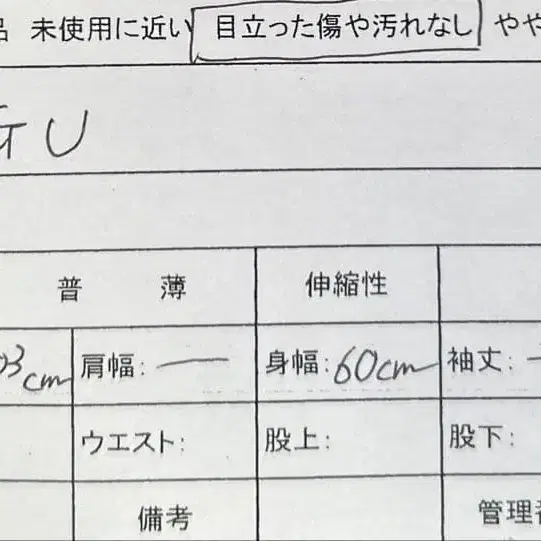 品 未使用に近い 目立った傷や汚れなし やや
GU
普 薄 伸縮性
03cm 肩幅: — 身幅:60cm 袖丈: —
ウエスト: 股上: 股下:
備考 管理番